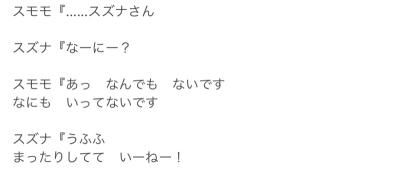 スモモ『……スズナさん
スズナ『なーにー？
スモモ『あっ　なんでも　ないです
なにも　いってないです
スズナ『うふふ
まったりしてて　いーねー！